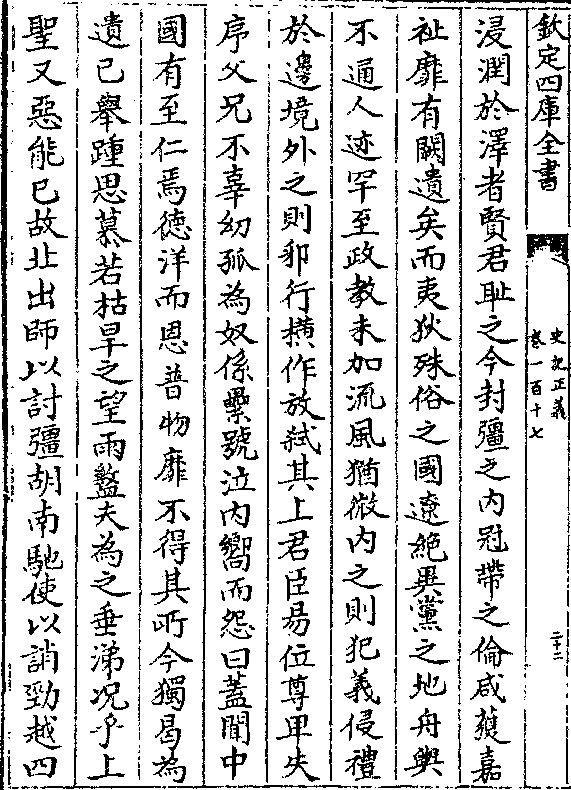 欽定四庫全書
史記正義
卷一百十七
二十二
浸潤於澤者賢君恥之今封疆之內冠帶之倫咸蒙嘉
祉靡有闕遺矣而夷狄殊俗之國遼絶異黨之地舟輿
不通人迹罕至政教未加流風猶微内之則犯義侵禮
於邊境外之則邪行横作放弑其上君臣易位尊卑失
序父兄不辜幼孤為奴係纍號泣内嚮而怨曰蓋聞中
國有至仁焉德洋而恩普物靡不得其所今獨曷為
遺已舉踵思慕若枯旱之望雨盭夫為之垂涕况乎上
聖又惡能已故北出師以討彊胡南馳使以誚勁越四